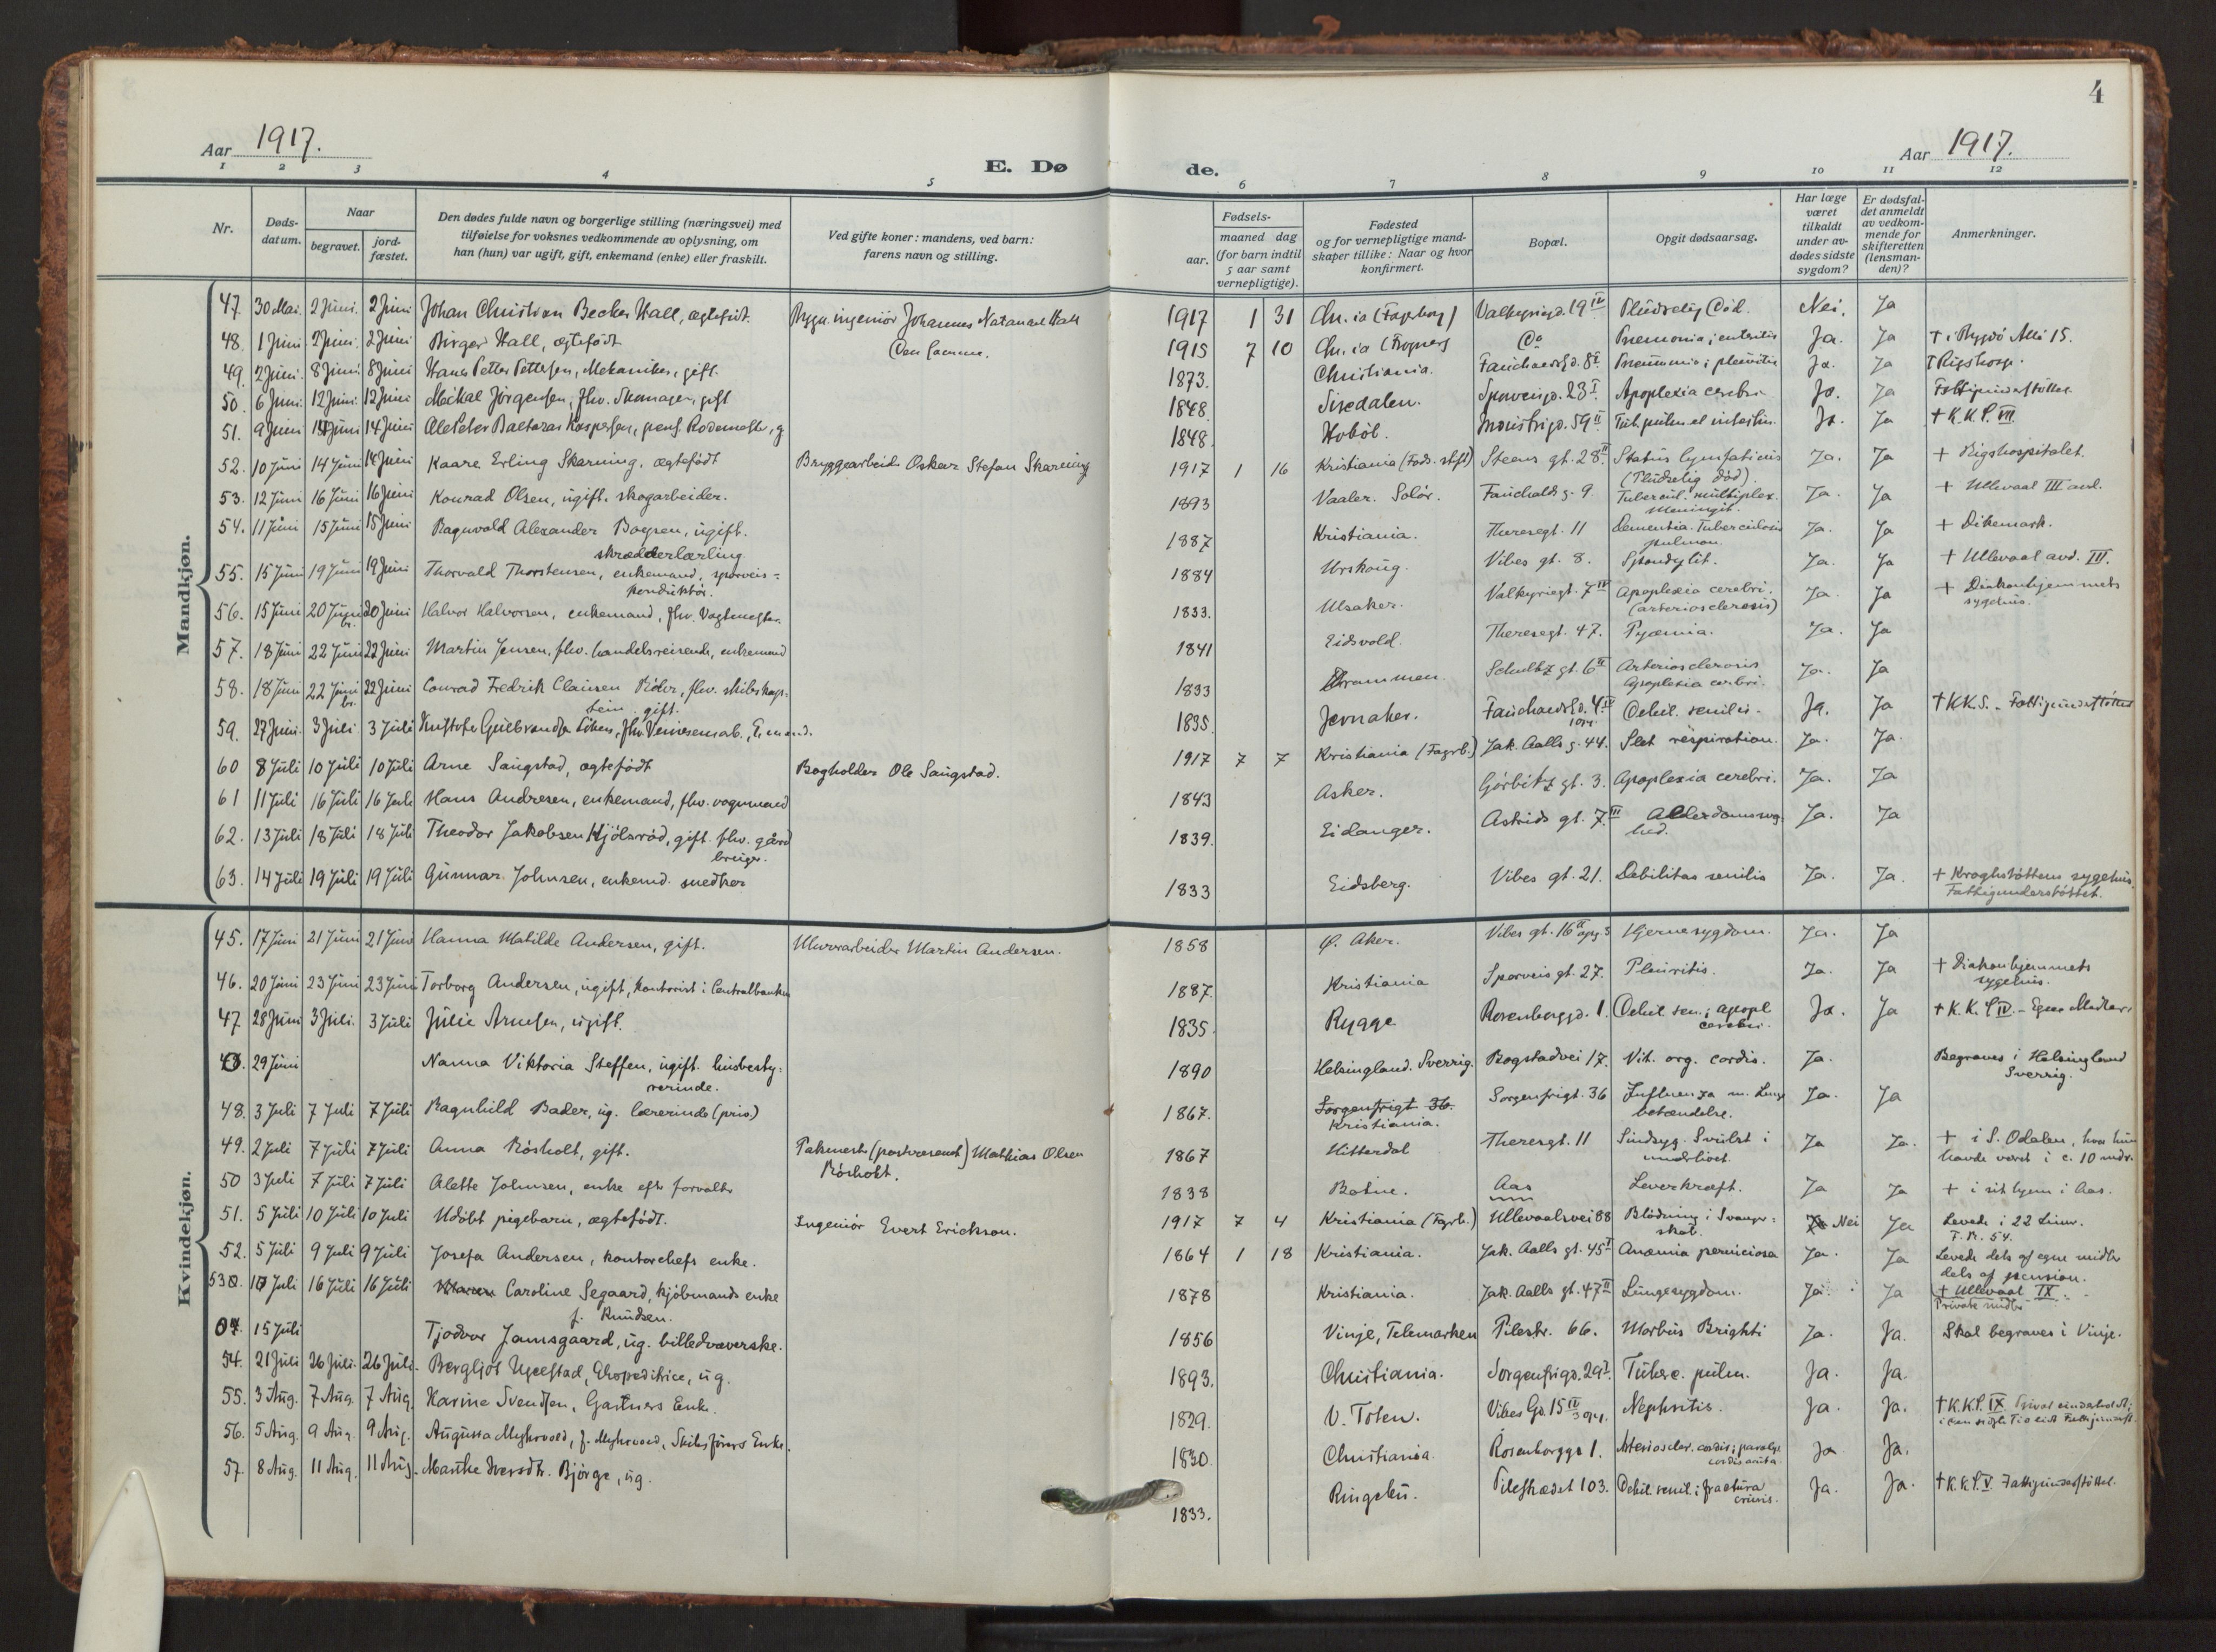 4
Aar 1917.
E. Døde.
Aar 1917.
1 2 3 4 5 6 7 8 9 10 11 12
Nr.
Døds-datum.
Naar
begravet.
jord-fæstet.
Den dødes fulde navn og borgerlige stilling (næringsvei) med
tilføielse for voksnes vedkommende av oplysning, om
han (hun) var ugift, gift, enkemand (enke) eller fraskilt.
Ved gifte koner: mandens, ved barn:
farens navn og stilling.
Fødsels-
aar.
maaned dag
(for barn indtil
5 aar samt
vernepligtige).
Fødested
og for vernepligtige mand-
skaper tillike: Naar og hvor
konfirmert.
Bopæl.
Opgit dødsaarsag.
Har læge
været
tilkaldt
under av-
dødes sidste
sygdom?
Er dødsfal-
det anmeldt
av vedkom-
mende for
skifteretten
(lensman-
den)?
Anmerkninger.
Mandkjøn.
47. 30 Mai. 2 Juni. 2 Juni Johan Christian Becker Hall, ægtefødt. Bygn. ingeniør Johannes Natanael Hall 1917 1 31 Chr.ia (Fagerborg) Valkyriegd. 19 IV Pludselig Død. Nei. Ja
48. 1 Juni 2 Juni. 2 Juni Birger Hall, ægtefødt Den samme. 1915 7 10 Chr.ia (Frogner) Do Pnemonia; enteritis Ja. Ja † i Bygdø Allé 15.
49. 2 Juni. 8 Juni 8 Juni Hans Petter Pettersen, Mekaniker, gift. 1873. Christiania. Fauchaldsgd. 8 I. Pneumonia; pleuritis Ja. Ja † Rigshosp.
50. 6 Juni. 12 Juni. 12 Juni Mickal Jørgensen, fhv. Skomager, gift 1848. Sporveisgd. 23 I. Apoplexia cerebri Ja. Ja Fattigunderstøttet.
51. 9 Juni 14 Juni 14 Juni Ole Peter Baltazar Kaspersen, pens. Rodemester, g 1848. Hobøl. Industrigd. 59 II. Tub. pulm. et intestin. Ja. Ja † K.K.S. VII
52. 10 Juni 14 Juni 14 Juni Kaare Erling Skarning, ægtefødt Bryggearbeider Oskar Stefan Skarning 1917 1 16 Kristiania (Føds. stift) Steens gt. 28 II. Status lymfaticus Ja. Ja + Rigshospitalet.
(Pludselig død).
53. 12 Juni 16 Juni 16 Juni Konrad Olsen, ugift. skogarbeider. 1893 Vaaler. Solør. Fauchalds g. 9. Tubercul. multiplex. Ja. Ja + Ullevaal III avd.
Meningit.
54. 11 Juni 15 Juni 15 Juni Ragnvald Alexander Boysen, ugift. 1887 Kristiania. Theresegt. 11 Dementia. Tuberculosis Ja. Ja + Dikemark.
skrædderlærling pulmon.
55. 15 Juni 19 Juni 19 Juni Thorvald Thorstensen, enkemand, sporveis= 1884 Urskoug. Vibes gt. 8. Spondylit. Ja. Ja + Ullevaal avd. III.
konduktør.
56. 15 Juni 20 Juni 20 Juni Halvor Halvorsen, enkemand, fhv. Vagtmester. 1833. Ulsaker. Valkyriegt. 7 IV Apoplexia cerebri. Ja. Ja + Diakonhjemmets
br. (arteriosclerosis) sygehus.
57. 18 Juni 22 Juni 22 Juni Martin Jensen, fhv. handelsreisende, enkemand 1841 Eidsvold. Theresegt. 47. Pyæmia. Ja. Ja
58. 18 Juni 22 Juni 22 Juni Conrad Fredrik Clausen Röder, fhv. skibskap= 1833 Drammen. Schultz gt. 6 II Arteriosclerosis Ja. Ja
br. tein. gift. Apoplexia cerbri.
59. 27 Juni. 3 Juli. 3 Juli 1835 Jevnaker. Fauchaldsgd. 4 IV Debil. senilis. Ja. Ja † K.K.S. - Fattigunderstøttet
60 8 Juli 10 Juli 10 Juli Arne Saugstad, ægtefødt Bogholder Ole Saugstad. 1917 7 7 Kristiania (Fagrb.) Jak. Aalls g. 44. Slet respiration. Ja. Ja.
61 11 Juli 16 Juli 16 Juli Hans Andresen, enkemand, fhv. vognmand 1843 Asker. Gørbitz gt. 3. Apoplexia cerebri. Ja. Ja
62. 13 Juli 18 Juli 18 Juli Theodor Jakobsen Hjölsröd, gift. fhv. gård 1839. Eidanger. Astrids gt. 7 III Alderdomssvag Ja. Ja
bruger. hed.
63. 14 Juli 19 Juli 19 Juli Gunnar Johnsen, enkemd. snedker 1833 Eidsberg. Vibes gt. 21. Debilitas senilis Ja. Ja. + Kroghstøttens sygehus.
Fattigunderstøttet.
Kvindekjøn.
45. 17 Juni 21 Juni 21 Juni Hanna Matilde Andersen, gift. Murarbeider Martin Andersen. 1858 Ø. Aker. Vibes gt. 16 II opg. 3 Hjernesygdom. Ja. Ja
46. 20 Juni 23 Juni 23 Juni Torborg Andersen, ugift, kontorist i Centralbanken 1887. Kristiania Sporveisgt. 27. Pleuritis. Ja. Ja + Diakonhjemmets
sygehus.
47. 28 Juni 3 Juli. 3 Juli Julie Arnesen, ugift. 1835. Rygge Rosenborggd. 1. Debil. sen.; apopl Ja. Ja † K.K.S IV. - Egne Midler
cerebri.
0. 29 Juni Nanna Viktoria Steffen, ugift. husbesty= 1890 Helsingland. Sverrig. Bogstadvei 17. Vit. org. cordis. Ja. Begraves i Helsingland
rerinde. Sverrig.
48. 3 Juli 7 Juli 7 Juli Ragnhild Bader, ug. lærerinde (priv.) 1867. Sorgenfrigt 36. Sorgenfrigt. 36 Influenza m. Lunge Ja. Ja
Kristiania. betændelse.
49. 2 Juli 7 Juli 7 Juli Anna Rösholt, gift. Pakmester (postvesenet) Mathias Olsen 1867 Hitterdal Theresegt. 11 Sindsyg. Svulst i Ja Ja. + i S. Odalen, hvor hun
Rösholt. underlivet. havde været i c. 10 mdr.
50 3 Juli 7 Juli 7 Juli Alette Johnsen, enke efter forvalter 1838 Botne. Aas Leverkræft. Ja Ja + i sit hjem i Aas.
51. 5 Juli 10 Juli 10 Juli Udöbt pigebarn, ægtefødt. Ingeniör Evert Erickson. 1917 7 4 Kristiania (Fagrb.) Ullevaalsvei 88 Blödning i Svanger= Ja Nei Ja Levede i 22 timer.
skab. F. Pr. 54.
52. 5 Juli 9 Juli 9 Juli Josefa Andersen, kontorchefs enke. 1864 1 18 Kristiania. Jak. Aalls gt. 45 I Anæmia perniciosa Ja. Ja Levede dels af egne midler
dels af pension.
53. 10 Juli 16 Juli 16 Juli Maren Caroline Segaard, kjöbmands enke 1878 Kristiania. Jak. Aalls gt. 47 II Lungesygdom. Ja. Ja + Ullevaal IX.
f. Knudsen. Private midler
0. 15 Juli Tjodvor Jamsgaard, ug. billedvæverske. 1856 Vinje, Telemarken Pilestr. 66. Morbus Brighti Ja. Ja. Skal begraves i Vinje.
54. 21 Juli 26 Juli. 26 Juli. Bergljot Ugelstad, Expeditrice, ug. 1893. Christiania. Sorgenfrigd. 29 I. Tuberc. pulm. Ja. Ja.
55. 3 Aug. 7 Aug. 7 Aug. Karine Svendsen, Gartners Enke. 1829. V. Toten. Vibes Gd. 15 IV Nephritis. Ja. Ja. † K.K.S. IX.
3 opg.
56. 5 Aug. 9 Aug. 9 Aug. Augusta Myhrvold, f. Myhrvold, Skibsførers Enke. 1830. Christiania. Rosenborggd 1. Arterioscler. cordis; paralys. Ja Ja.
cordis acuta.
57. 8 Aug. 11 Aug. 11 Aug. Marthe Iversdtr. Bjørge, ug. 1833. Ringebu. Pilestrædet 103. Debil. senil.; fractura Ja. Ja. † K.K.S. V. Fattigunderstøttet.
cruris.